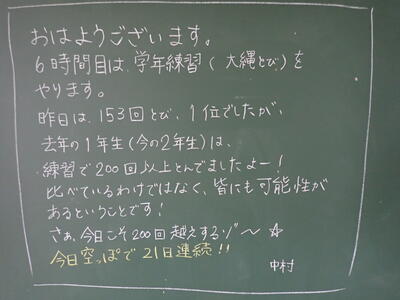 おはようございます。
6時間目は、学年練習(大縄とび)を
やります。
昨日は、153回とび、1位でしたが、
去年の1年生(今の2年生)は、
練習で200回以上とんでましたよー!
比べているわけではなく、皆にも可能性が
あるということです!
さぁ、今日こそ200回越えするゾ〜☆
今日空っぽで21日連続!!
中村